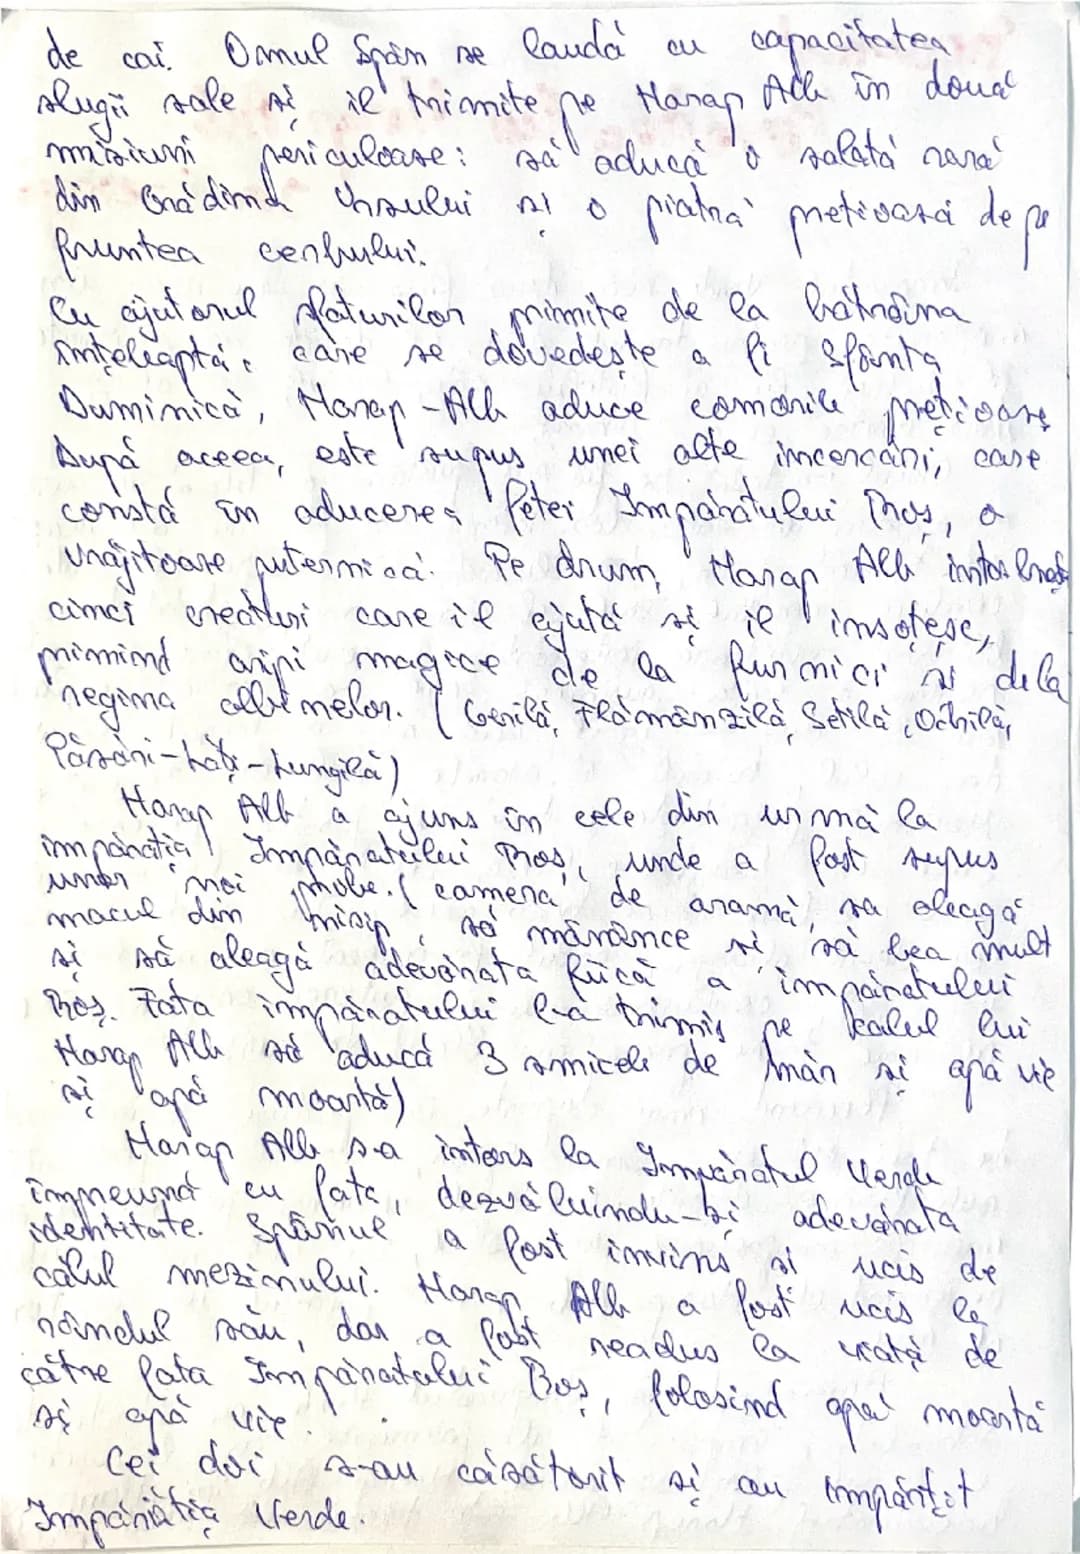 de cai. Omul Spân se laudă cu capacitatea
slugii sale și îl trimite pe Harap Alb în două
misiuni periculoase: să aducă o salată rară
din Grădina Ursului și o piatră prețioasă de pe
fruntea cerbului.
Cu ajutorul sfaturilor primite de la bătrâna
înțeleaptă, care se dovedește a fi Sfânta
Duminică, Harap-Alb aduce comorile prețioase
După aceea, este supus unei alte încercări, care
constă în aducerea fetei Împăratului Roș, o
vrăjitoare puternică. Pe drum, Harap Alb întâlnește
cinci creaturi care îl ajută și îl însoțesc,
primind aripi magice de la furnici și de la
regina albinelor. (Gerilă, Flămânzilă, Setilă, Ochilă,
Păsări-Lăți-Lungilă)
Harap Alb a ajuns în cele din urmă la
împărăția Împăratului Roș, unde a fost supus
unor noi probe. (camera de aramă, sa aleagă
macul din nisip, să mănânce și să bea mult
și să aleagă adevărata fiică a împăratului
Roș. Fata împăratului l-a trimis pe calul lui
Harap Alb să aducă 3 smicele de măr și apă vie
și apă moartă)
Harap Alb s-a întors la Împăratul Verde
împreună cu fata, dezvăluindu-și adevărata
identitate. Spânul a fost învins și ucis de
calul mezinului. Harap Alb a fost ucis la
rândul său, dar a fost readus la viață de
către fata Împăratului Roș, folosind apă moartă
și apă vie.
Cei doi s-au căsătorit și au împărțit
Împărăția Verde.